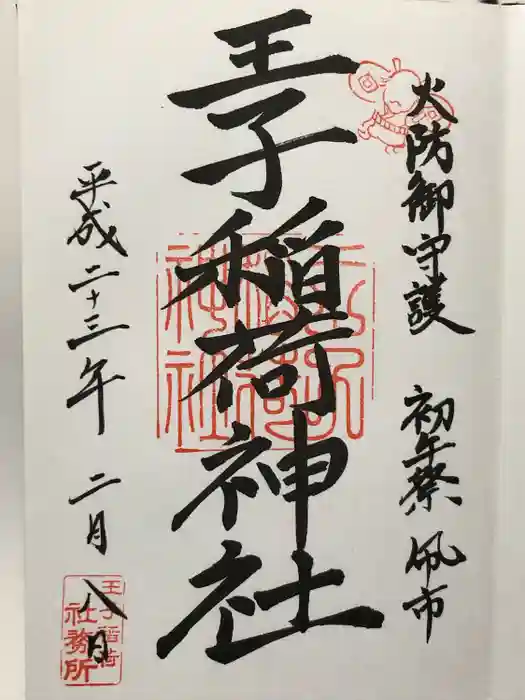 火防御守護 初午祭 凧市
王子稲荷神社
平成二十三年 二月 八日
王子稲荷神社
王子稲荷
社務所